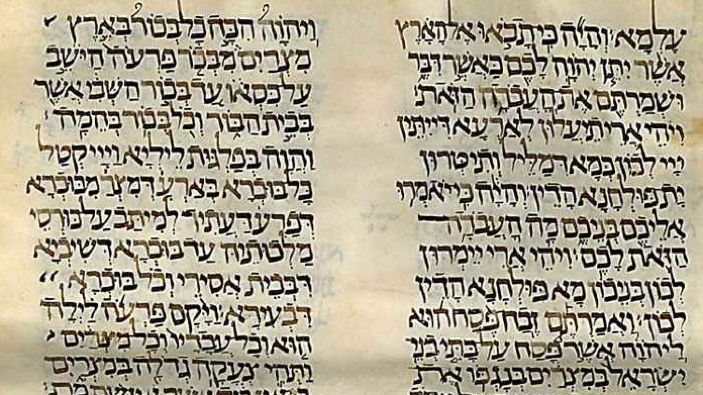 עלמא והיה כי תבאו אל הארץ
אשר יתן יהוה לכם כאשר דבר
ושמרתם את העבדה הזאת
ויהי ארי תעלון לארעא דייתין
ייי לכון כמא דמליל ותיטרון
ית פולחנא הדין והיה כי יאמרו
אליכם בניכם מה העבדה
הזאת לכם ויהי ארי יימרון
לכון בניכון מא פולחנא הדין
לכון ואמרתם זבח פסח הוא
ליהוה אשר פסח על בתי בני
ישראל במצרים בנגפו את
ויהוה הכה כל בכור בארץ
מצרים מבכר פרעה הישב
על כסאו עד בכור השבי אשר
בבית הבור וכל בכור בהמה
והוה בפלגות ליליא וייי קטל
כל בוכרא בארע דמצר מבוכרא
דפרע דעתיד למיתב על כורסי
מלכותיה עד בוכרא דשיביא
דבבית אסירי וכל בוכרא
דבעירא ויקם פרעה לילה
הוא וכל עבדיו וכל מצרים
ותהי צעקה גדלה במצרים